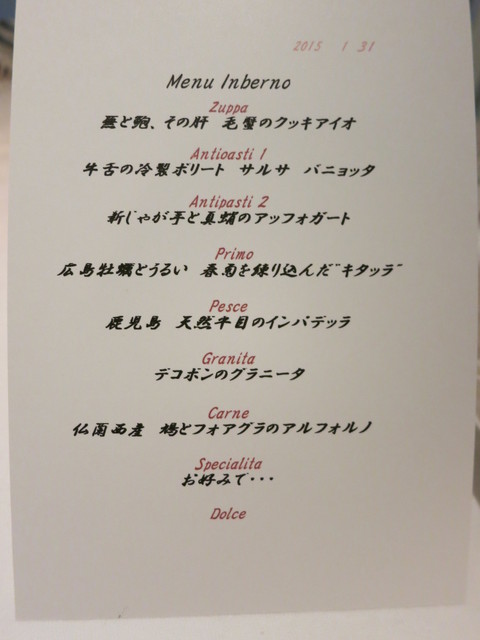 2015 1 31
Menu Inberno
Zuppa
蕪と鮑、その肝 毛蟹のクッキアイオ
Antioasti 1
牛舌の冷製ボリート サルサ バニョッタ
Antipasti 2
新じゃが芋と真蛸のアッフォガート
Primo
広島牡蠣とうるい 春菊を練り込んだ"キタッラ"
Pesce
鹿児島 天然平目のインパデッラ
Granita
デコポンのグラニータ
Carne
仏蘭西産 鳩とフォアグラのアルフォルノ
Specialita
お好みで・・・
Dolce